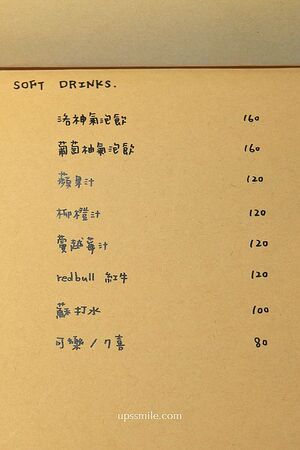 SOFT DRINKS.
洛神氣泡飲 160
葡萄柚氣泡飲 160
蘋果汁 120
柳橙汁 120
蔓越莓汁 120
redbull 紅牛 120
蘇打水 100
可樂 / 7喜 80
upssmile.com